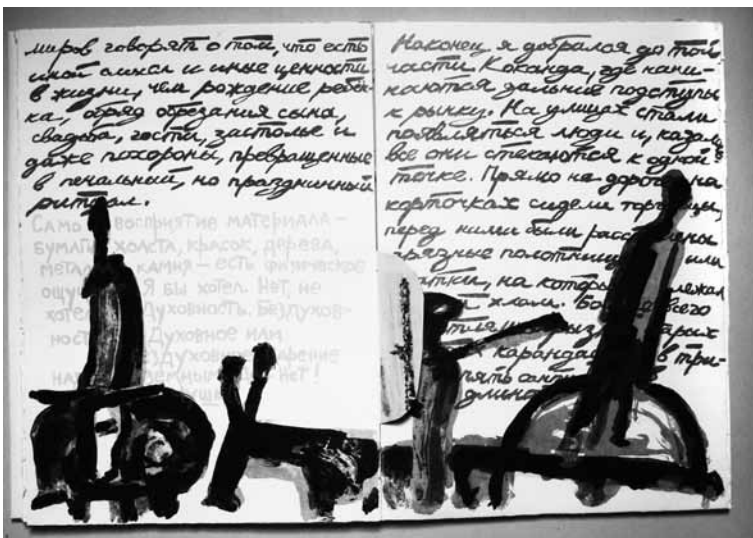 миров говорят о том, что есть
иной смысл и иные ценности
в жизни, чем рождение ребен-
ка, обряд обрезания сына,
свадьба, гости, застолье и
даже похороны, превращенные
в печальный, но праздничный
ритуал.
Само восприятие материала –
бумаги, холста, красок, дерева,
метал камня – есть физическое
ощу Я бы хотел. Нет, не
хотел Духовность. Бездухов-
ност Духовное или
ездуховн парение
над емным нет!
Наконец я добрался до той
части Коканда, где начи-
наются дальние подступы
к рынку. На улицах стали
появляться люди и, казалось
все они стекаются к одной
точке. Прямо на дороге, на
корточках сидели торговцы,
перед ними были расс ены
грязные полотнищ или
на которы лежал
й хлам. Бо всего
арых
х каранда в три-
пять санти
длино